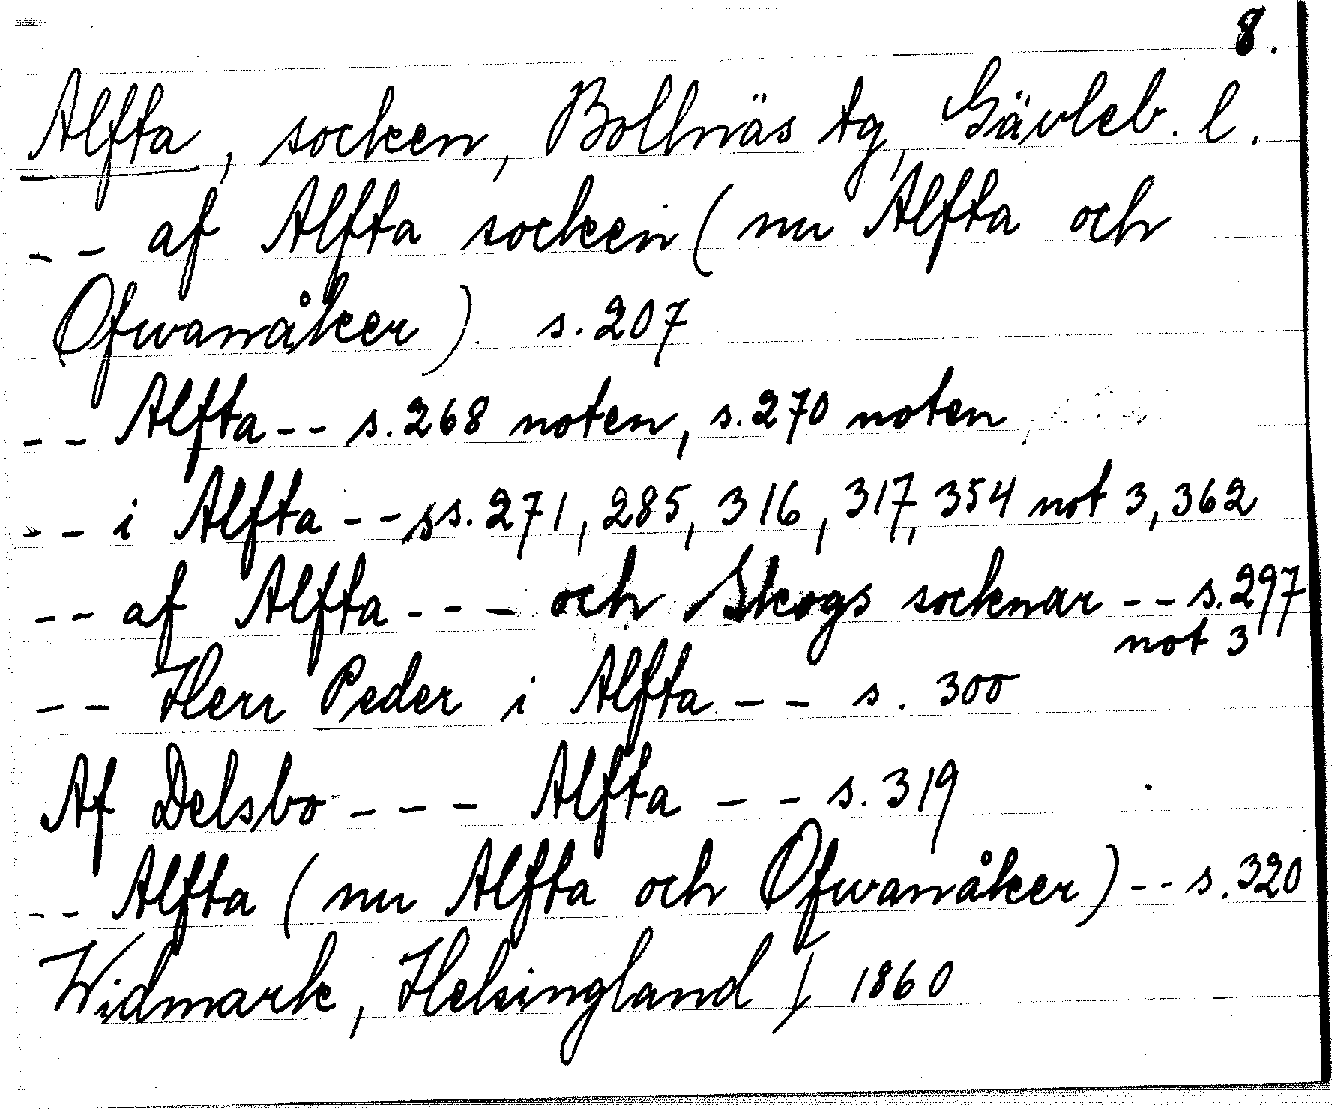 8.
Alfta, socken, Bollnäs tg, Gävleb. l.
- - af Alfta socken (nu Alfta och
Ofwanåker) s. 207
- - Alfta - - s. 268 noten, s. 270 noten
- - i Alfta - - ss. 271, 285, 316, 317, 354 not 3, 362
- - af Alfta - - - och Skogs socknar - - s. 297
not 3
- - Herr Peder i Alfta - - s. 300
Af Delsbo - - - Alfta - - s. 319
- - Alfta (nu Alfta och Ofwanåker) - - s. 320
Widmark, Helsingland / 1860